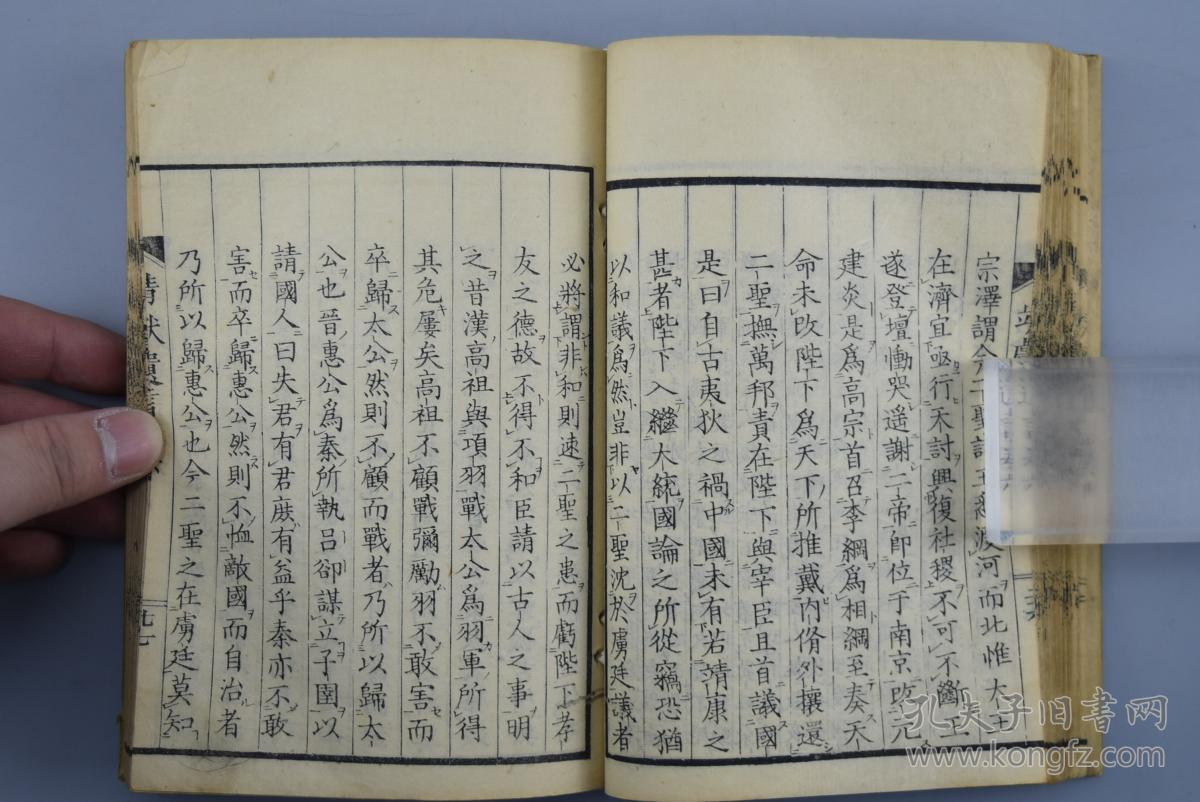 宗澤謂今二聖諸王悉渡河而北惟大王
在濟宜亟行天討興復社稷不可不斷王
遂登壇慟哭遥謝二帝即位于南京改元
建炎是爲高宗首召李綱爲相綱至奏天
命未改陛下爲天下所推戴内脩外攘還
二聖撫萬邦責在陛下與宰臣且首議國
是曰自古夷狄之禍中國未有若靖康之
甚者陛下入繼大統國論之所從竊恐猶
以和議爲然豈非以二聖沈於虜廷議者
必將謂非和則速二聖之患而虧陛下孝
友之德故不得不和臣請以古人之事明
之昔漢高祖與項羽戰太公爲羽軍所得
其危屢矣高祖不顧戰彌勵羽不敢害而
卒歸太公然則不顧而戰者乃所以歸太
公也晉惠公爲秦所執呂郤謀立子圉以
請國人曰失君有君庶有益乎秦亦不敢
害而卒歸惠公然則不恤敵國而自治者
乃所以歸惠公也今二聖之在虜廷莫知
靖獻遺言
廿七
孔夫子旧书网
www.kongfz.com